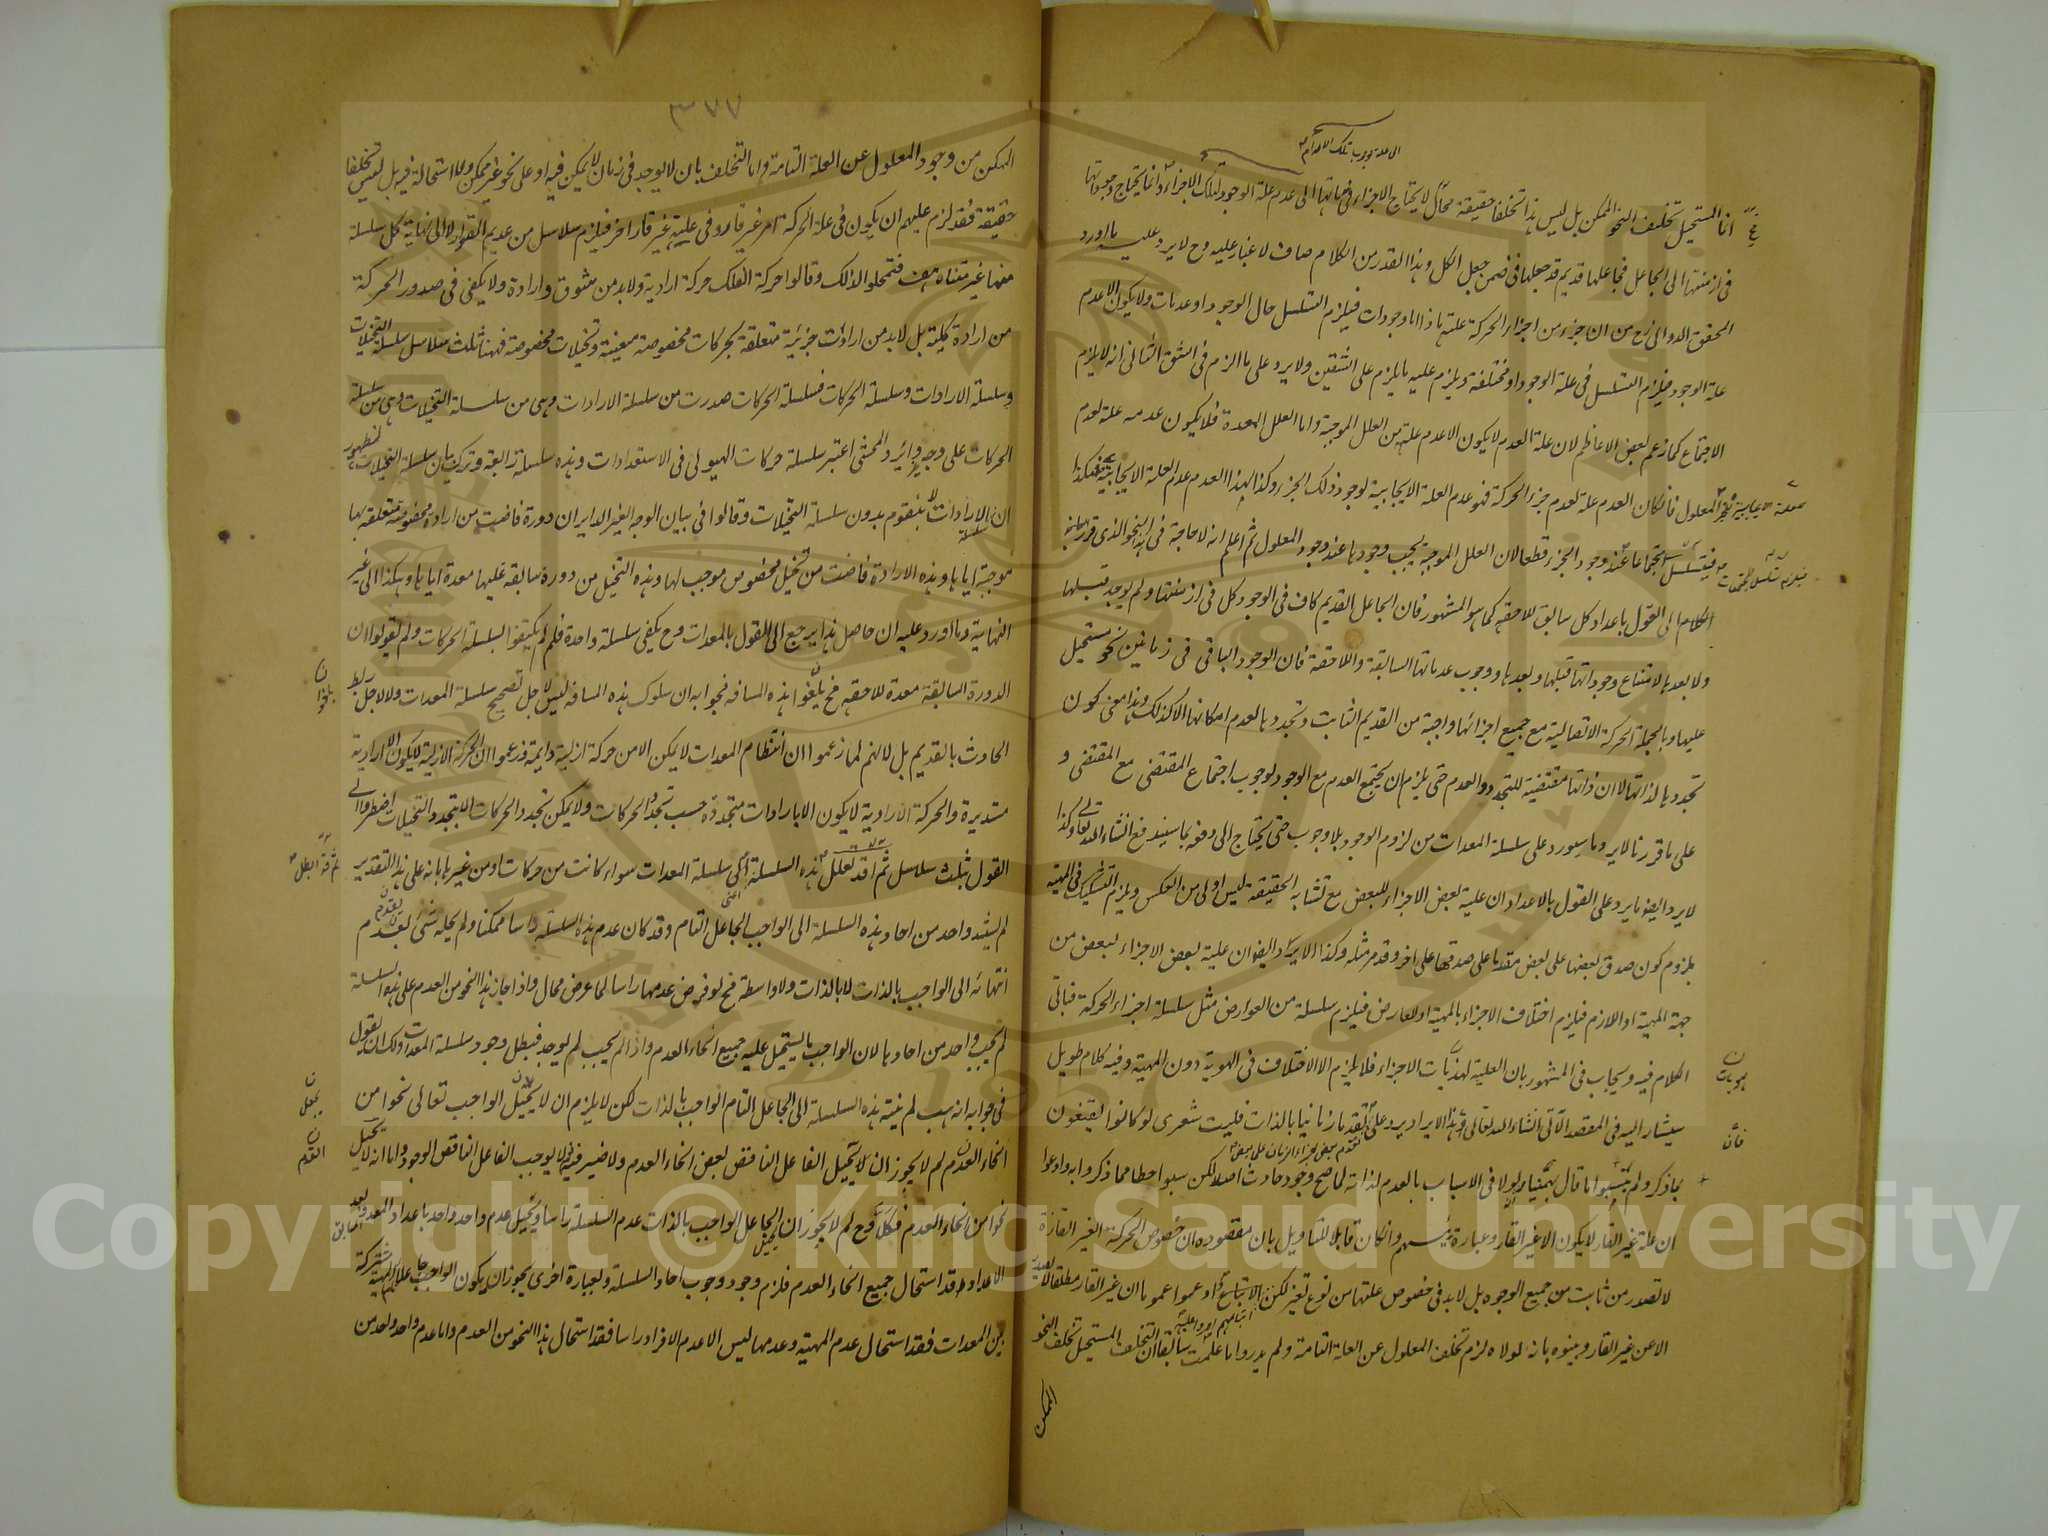 انما المستحيل تخلف النحو الممكن بل ليس هذا تخلفا حقيقة لا يحتاج الاجزاء في ذاتها الى عدم علة الوجود لتلك الاجزاء وانما يحتاج وجوداتها
في ازمنتها الى الجاعل فجاعلها قديم قد جعلها في ضمن جعل الكل وهذا القدر من الكلام صاف لا غبار عليه وح لا يرد عليه ما اورد
المحقق الدواني رح من ان جزء من اجزاء الحركة علته ماذا اما وجودات فيلزم التسلسل حال الوجود او عدمات ولا يكون الا عدم
علة الوجود فيلزم التسلسل في علة الوجود او مختلفة ويلزم عليه ما يلزم على الشقين ولا يرد على ما الزم في الشق الثاني انه لا يلزم
الاجتماع كما زعم بعض الاعاظم لان علة العدم لا يكون الا عدم علة من العلل الموجبة واما العلل المعدة فلا يكون عدمه علة لعدم
المعلول فان كان العدم علة لعدم جزء الحركة فهو عدم العلة الايجابية لوجود ذلك الجزء وكذا لهذا العدم عدم العلة الايجابية
فيتسلسل عند وجود الجزء قطعا لان العلل الموجبة يجب وجودها عند وجود المعلول ثم اعلم انه لا حاجة في النحو الذي قررنا
الكلام الى القول باعداد كل سابق للاحقه كما هو المشهور فان الجاعل القديم كاف في الوجود كل في ازمنتها ولم يوجد قبلها
ولا بعدها لامتناع وجوداتها قبلها وبعدها ووجوب عدماتها السابقة واللاحقة فان الوجود الباقي في زمانين نحو مستحيل
عليها وبالجملة الحركة الاتصالية مع جميع اجزائها واجبة من القديم الثابت وتجددها لعدم امكانها الا كذلك وهذا معنى كون
تجددها لذاتها لا ان ذاتها مقتضية للتجدد والعدم حتى يلزم ان يجتمع العدم مع الوجود لوجوب اجتماع المقتضى مع المقتضى و
على ما قررنا لا يرد ما سيورد على سلسلة المعدات من لزوم الوجود بلا وجوب حتى يحتاج الى دفعه بما سيندفع انشاء الله تعالى وكذا
لا يرد ايضا ما يرد على القول بالاعداد ان علية بعض الاجزاء للبعض مع تشابه الحقيقة ليس اولى من العكس ويلزم التشكيك في المهية
بلزوم كون صدق بعضها على بعض مقدما على صدقها على اخر وقد مر مثله وكذا الايراد ايضا ان علية بعض الاجزاء لبعض من
جهة المهية او اللازم فيلزم اختلاف الاجزاء بالمهية او العارض فيلزم سلسلة من العوارض مثل سلسلة اجزاء الحركة فياتي
الكلام فيه ويجاب في المشهور بان العلية لهذيات الاجزاء فلا يلزم الا الاختلاف في الهوية دون المهية وفيه كلام طويل
سيشار اليه في المقصد الآتي انشاء الله تعالى وهذا الايراد يرد على تقدم زمانيا بالذات فليت شعري لو كانوا يقنعون
بما ذكر ولم يتشبثوا ما قال بهمنيار لولا في الاسباب بالعدم لذاته لما صح وجود حادث اصلا لكن سبوا خطا مما ذكروا به وادعوا
ان علة غير القار لا يكون الا غير القار وعبارة رئيسهم وان كان قابلا للتاويل بان مقصوده ان خصوص الحركة الغير القارة
لا تصدر من ثابت من جميع الوجوه بل لا بد في خصوص علتها من نوع تغير لكن الاتباع قد ادعوا عموما ان غير القار مطلقا لا يصدر
الا من غير القار وبينوه بانه لولاه لزم تخلف المعلول عن العلة التامة ولم يدروا ما علمت سابقا ان التخلف المستحيل تخلف النحو
الممكن
٣٧٧
الممكن من وجود المعلول عن العلة التامة واما التخلف بان لا يوجد في زمان لا يمكن فيه او على نحو غير ممكن فلا استحالة فيه بل ليس تخلفا
حقيقة فقد لزم عليهم ان يكون في علة الحركة امر غير قار وفي علية غير قار اخر فيلزم سلاسل من عديم القرار لا الى نهاية كل سلسلة
منها غير متناه هف فتمحلوا لذلك وقالوا حركة الفلك حركة ارادية ولا بد من شوق وارادة ولا يكفي في صدور الحركة
من ارادة كلية بل لا بد من ارادات جزئية متعلقة بحركات مخصوصة معينة وتخيلات مخصوصة فههنا ثلث سلاسل سلسلة التخيلات
وسلسلة الارادات وسلسلة الحركات فسلسلة الحركات صدرت من سلسلة الارادات وهي من سلسلة التخيلات وهي من سلسلة
الحركات على وجه دائر والمحشي اعتبر سلسلة حركات الهيولى في الاستعدادات وهذه سلسلة رابعة وترك بيان سلسلة التخيلات لظهور
ان سلسلة الارادات لا يتقوم بدون سلسلة التخيلات وقالوا في بيان الوجه الغير الدائر ان دورة فاضت من ارادة مخصوصة متعلقة بها
موجبة اياها وهذه الارادة فاضت من تخيل مخصوص موجب لها وهذه التخيل من دورة سابقة عليها معدة اياها وهكذا الى غير
النهاية وما اورد عليه ان حاصل هذا يرجع الى القول بالمعدات وح يكفي سلسلة واحدة فلم لم يكتفوا بسلسلة الحركات ولم يقولوا ان
الدورة السابقة معدة للاحقه فح يلغوا هذه المسافه فجوابه ان سلوك هذه المسافه ليس لاجل تصحيح سلسلة المعدات ولا لاجل ربط
الحادث بالقديم بل لانهم لما زعموا ان انتظام المعدات لا يمكن الا من حركة ازلية دايمة وزعموا ان الحركة الازلية لا يكون الا ارادية
مستديرة والحركة الارادية لا يكون الا بارادات متجددة حسب تجدد الحركات ولا يمكن تجدد الحركات الا بتجدد التخيلات اضطروا الى
القول بثلث سلاسل ثم اقد تعلل هذه السلسلة اعني سلسلة المعدات سواء كانت من حركات او من غيرها بانه على هذا التقدير
لم يستند واحد من احاد هذه السلسلة الى الواجب الجاعل التام وقد كان عدم هذه السلسلة راسا ممكنا ولم يحله شئ لعدم
انتهائه الى الواجب بالذات لا بالذات ولا واسطة فح لو فرض عدمها راسا لما عرض محال واذا جاز هذا النحو من العدم على هذه السلسلة
لم يجب واحد من احادها لان الواجب ما يستحيل عليه جميع انحاء العدم واذا لم يجب لم يوجد فبطل وجود سلسلة المعدات ولك ان تقول
في جوابه انه هب لم ينته هذه السلسلة الى الجاعل التام الواجب بالذات لكن لا يلزم ان لا يحيل الواجب تعالى نحوا من
انحاء العدم لم لا يجوز ان يحيل الفاعل الناقص بعض انحاء العدم ولا ضير فيه اذ لا يوجب الفاعل الناقص الوجود واما انه لا يحيل
نحوا من انحاء العدم فكلا وح لم لا يجوز ان الجاعل الواجب بالذات عدم السلسلة راسا ويحيل عدم واحد واحد باعداد المعد
الاعداد وقد استحال جميع انحاء العدم فلزم وجود وجوب احاد السلسلة وبعبارة اخرى يجوز ان يكون الواجب جاعلا للمهية مشتركة
بين المعدات فقد استحال عدم المهية وعدمها ليس الا عدم الافراد راسا فقد استحال هذا النحو من العدم واما عدم واحد واحد من
Copyright © King Saud University